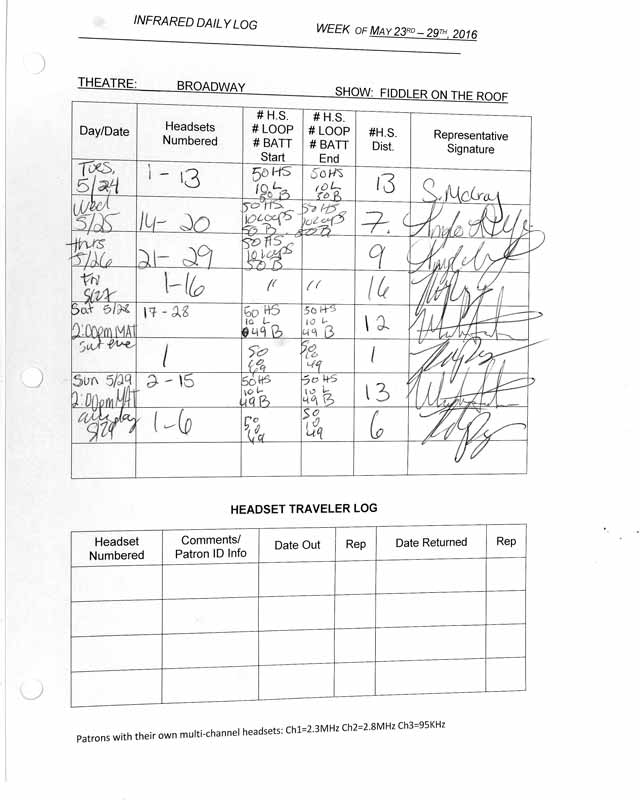 INFRARED DAILY LOG WEEK OF MAY 23RD – 29TH, 2016
THEATRE: BROADWAY SHOW: FIDDLER ON THE ROOF
Day/Date Headsets Numbered # H.S. # LOOP # BATT Start # H.S. # LOOP # BATT End #H.S. Dist. Representative Signature
Tues. 5/24 1 - 13 50 HS 10 L 50 B 50 HS 10 L 50 B 13 S. McCray
Wed 5/25 14 - 20 50 HS 10 loops 50 B 50 HS 10 loops 50 B 7.
Thurs 5/26 21 - 29 50 HS 10 loops 50 B 9
Fri 5/27 1-16 " " 16
Sat 5/28 2:00pm MAT 17 - 28 50 HS 10 L 49 B 50 HS 10 L 49 B 12
Sat eve 1 50 10 49 50 10 49 1
Sun 5/29 2:00pm MAT 2 - 15 50 HS 10 L 49 B 50 HS 10 L 49 B 13
5/29 1-6 50 10 49 50 10 49 6
HEADSET TRAVELER LOG
Headset Numbered Comments/ Patron ID Info Date Out Rep Date Returned Rep
Patrons with their own multi-channel headsets: Ch1=2.3MHz Ch2=2.8MHz Ch3=95KHz